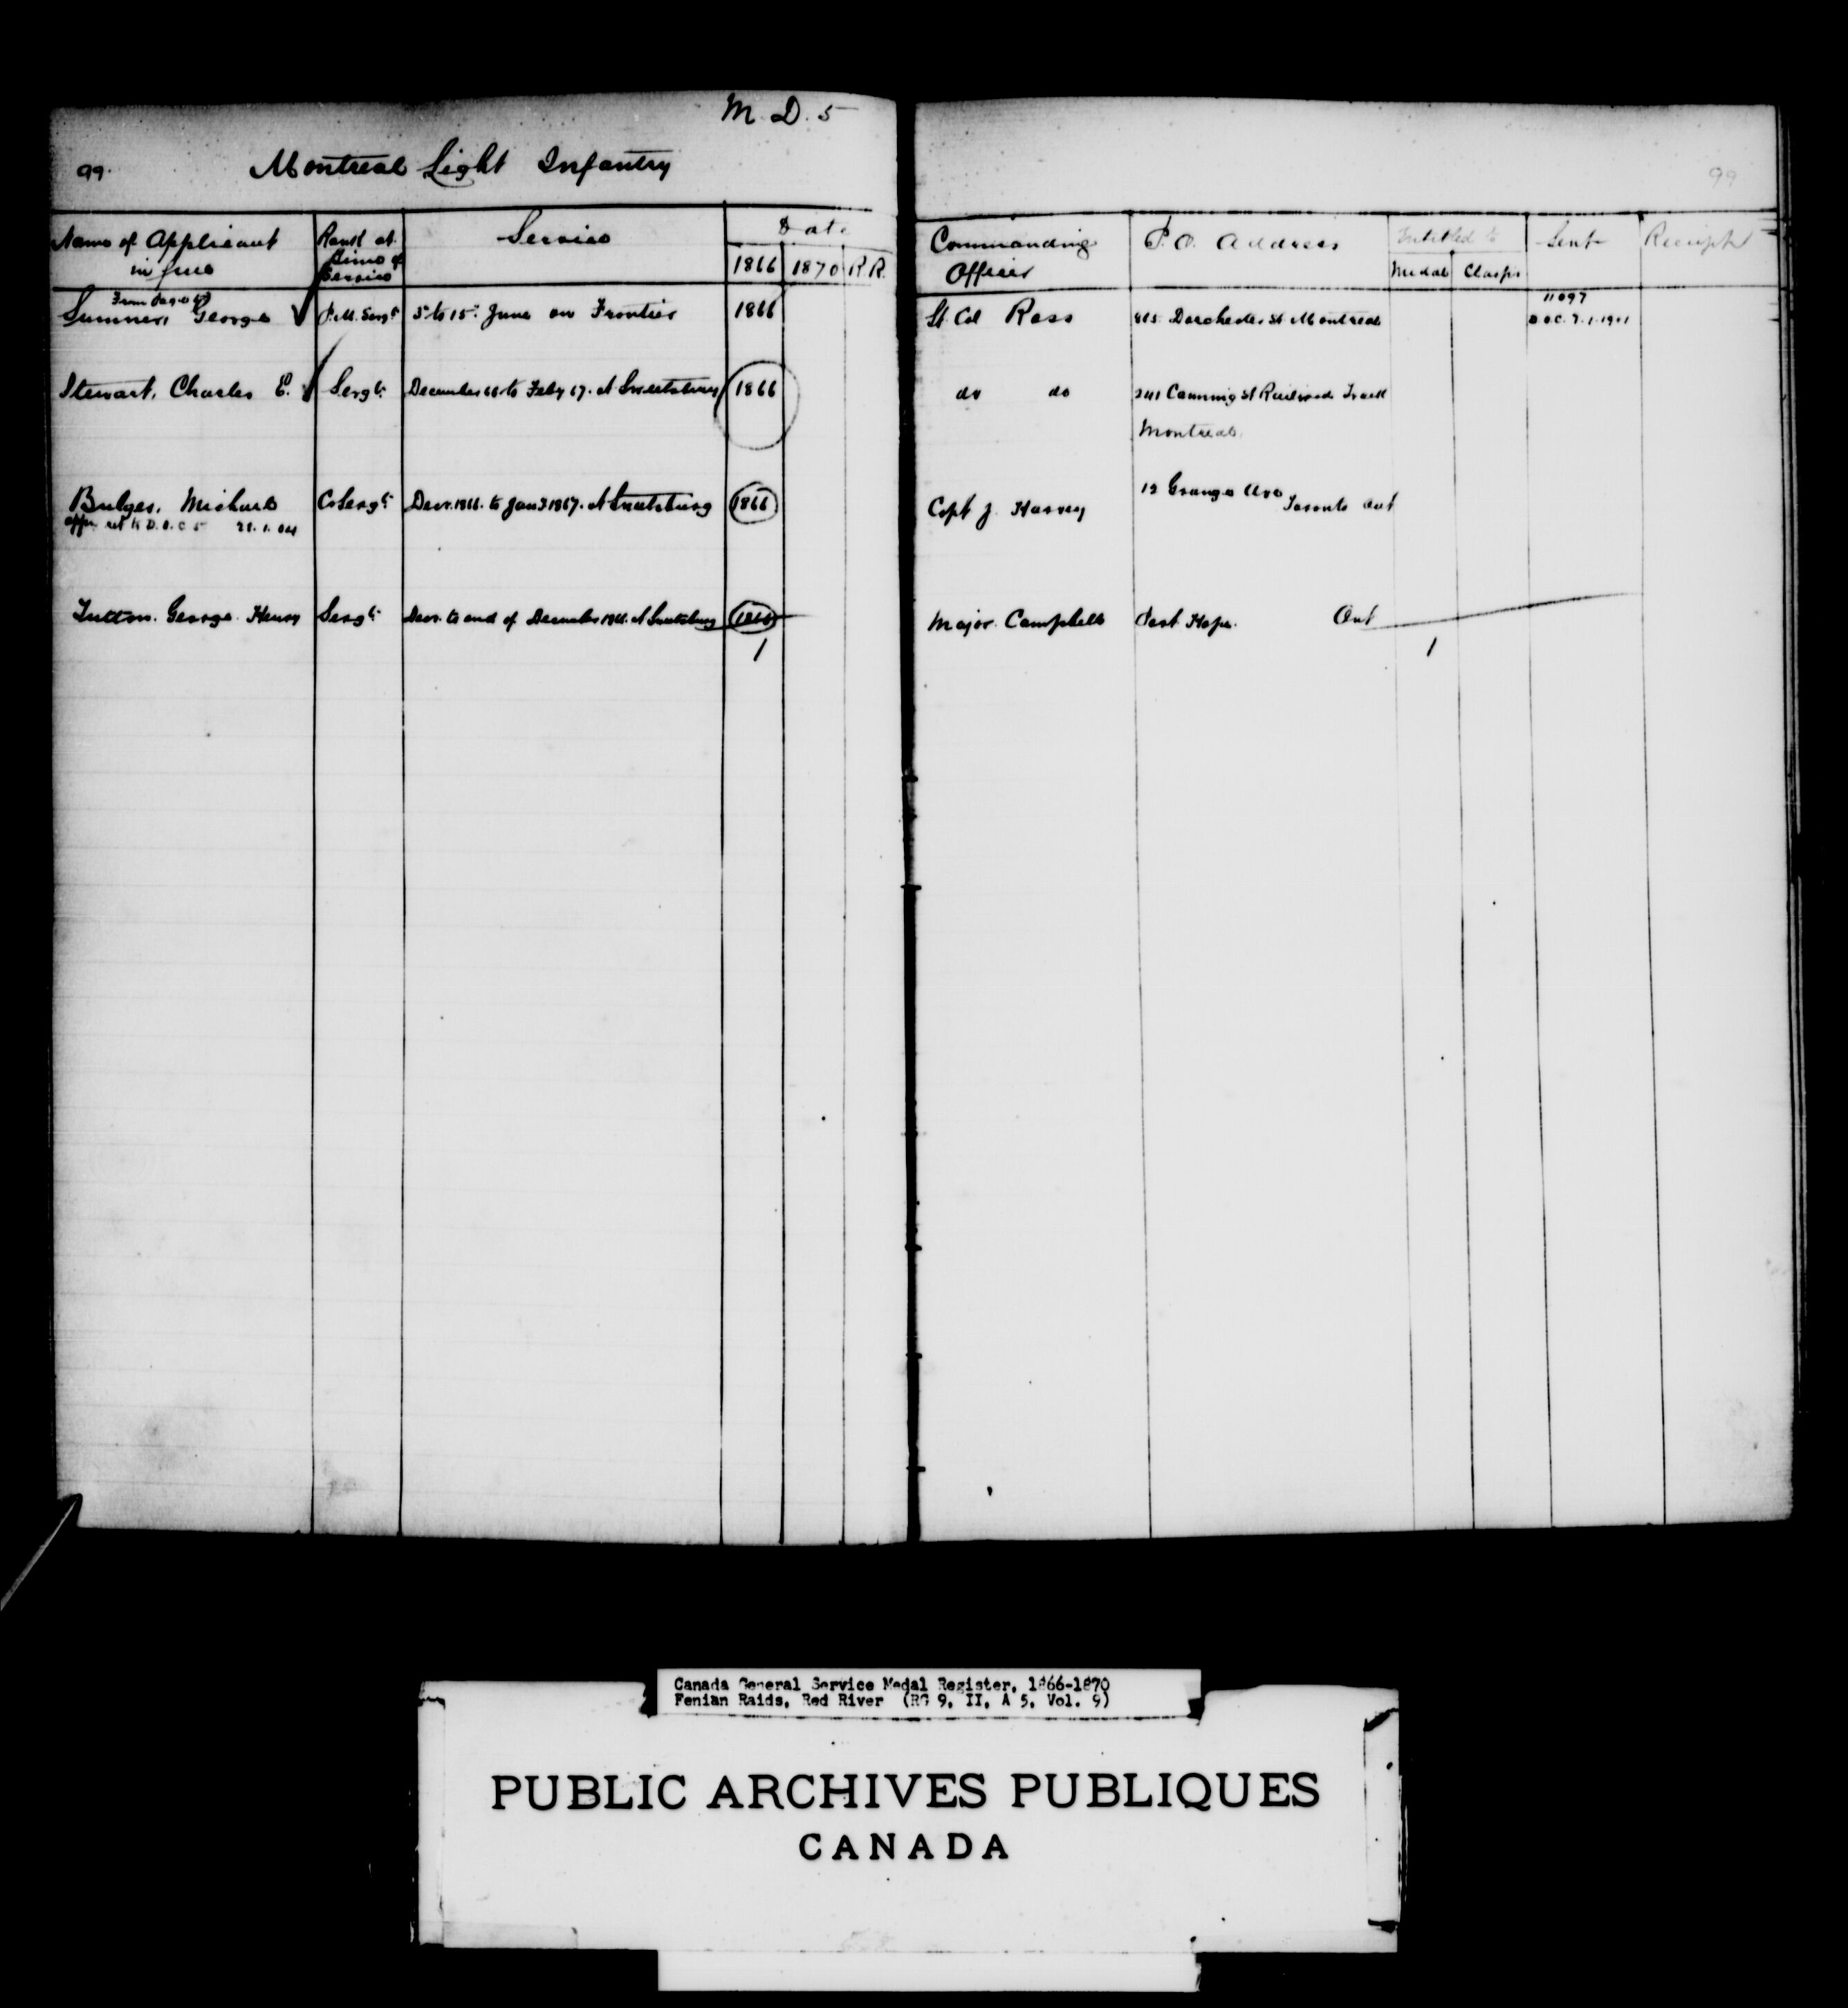 M. D. 5
99.
Montreal Light Infantry
99
Name of Applicant in full
Rank at time of Service
Service
Date
1866 1870 R.R.
Commanding Officer
P. O. Address
Entitled to
Medal Clasps
Sent
Receipt
From Page
Sumner, George P.M. Sergt 5 to 15 June on Frontier 1866 Lt Col Ross 815 Dorchester St Montreal 11097
D.O.C. 7.1.1901
Stewart, Charles E. Sergt December 66 to Feby 67. At Sweetsburg 1866 do do 241 Canning St Railroad Track
Montreal
Bulger, Michael C. Sergt Decr 1866. to Jany 1867. At Sweetsburg 1866 Capt J. Harvey 12 Grange Ave Toronto Ont
ret to D.O.C 5 21.1.04
Tutton. George. Henry Sergt Decr. to end of December 1866. At Sweetsburg 1866 Major Campbell Port Hope. Ont
1 1
Canada General Service Medal Register, 1866-1870
Fenian Raids, Red River (RG 9, II, A 5, Vol. 9)
PUBLIC ARCHIVES PUBLIQUES
CANADA